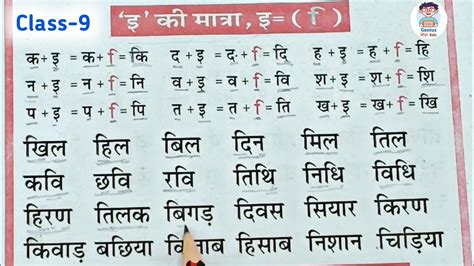 Class-9
Genius
'इ' की मात्रा, इ= ( ि )
क+ इ = क+ ि = कि द + इ = द+ ि = दि ह + इ = ह + ि = हि
न + इ = न + ि = नि व + इ = व + ि = वि श + इ = श + ि = शि
प + इ = प + ि = पि त + इ = त + ि = ति ख+ इ = ख+ ि = खि
खिल हिल बिल दिन मिल तिल
कवि छवि रवि तिथि निधि विधि
हिरण तिलक बिगड़ दिवस सियार किरण
किवाड़ बछिया हिसाब निशान चिड़िया